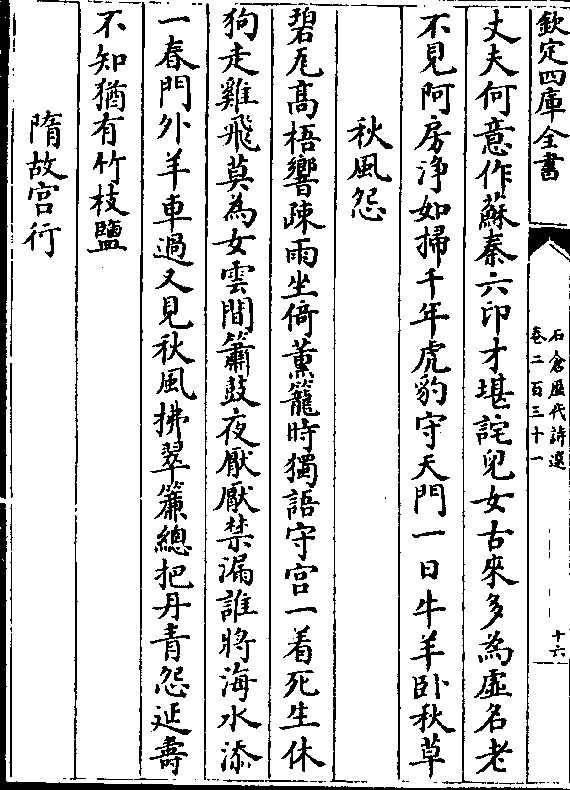 欽定四庫全書
石倉歷代詩選
卷二百三十一
十六
丈夫何意作蘇秦六印才堪詫兒女古來多為虛名老
不見阿房淨如掃千年虎豹守天門一日牛羊卧秋草
秋風怨
碧瓦高梧響疎雨坐倚薰籠時獨語守宫一着死生休
狗走雞飛莫為女雲間簫鼓夜厭厭禁漏誰將海水添
一春門外羊車過又見秋風拂翠簾總把丹青怨延壽
不知猶有竹枝鹽
隋故宫行